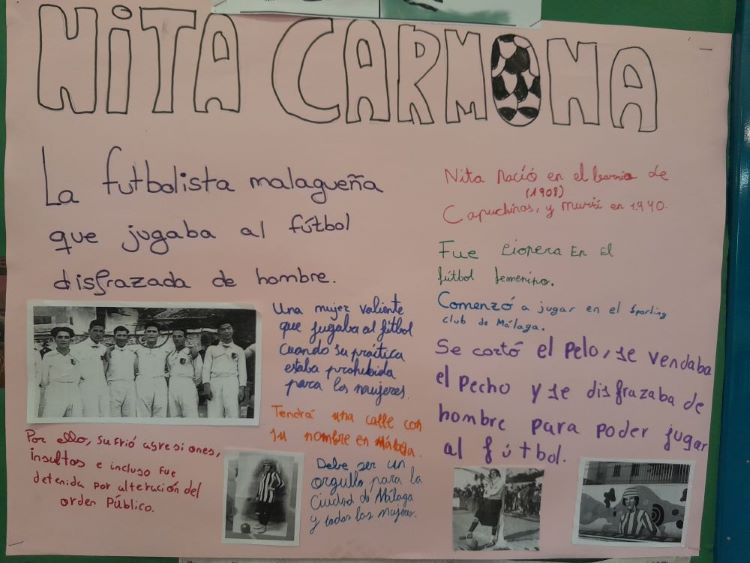 NITA CARMONA
La futbolista malagueña
que jugaba al fútbol
disfrazada de hombre.
Nita nació en el barrio de
(1908)
Capuchinos, y murió en 1940.
Fue pionera en el
fútbol femenino.
Comenzó a jugar en el Sporting
club de Málaga.
Se cortó el pelo, se vendaba
el pecho y se disfrazaba de
hombre para poder jugar
al fútbol.
Una mujer valiente
que jugaba al fútbol
cuando su práctica
estaba prohibida
para las mujeres.
Tendrá una calle con
su nombre en Málaga.
Debe ser un
orgullo para la
Ciudad de Málaga
y todas las mujeres.
Por ello, sufrió agresiones,
insultos e incluso fue
detenida por alteración del
orden Público.